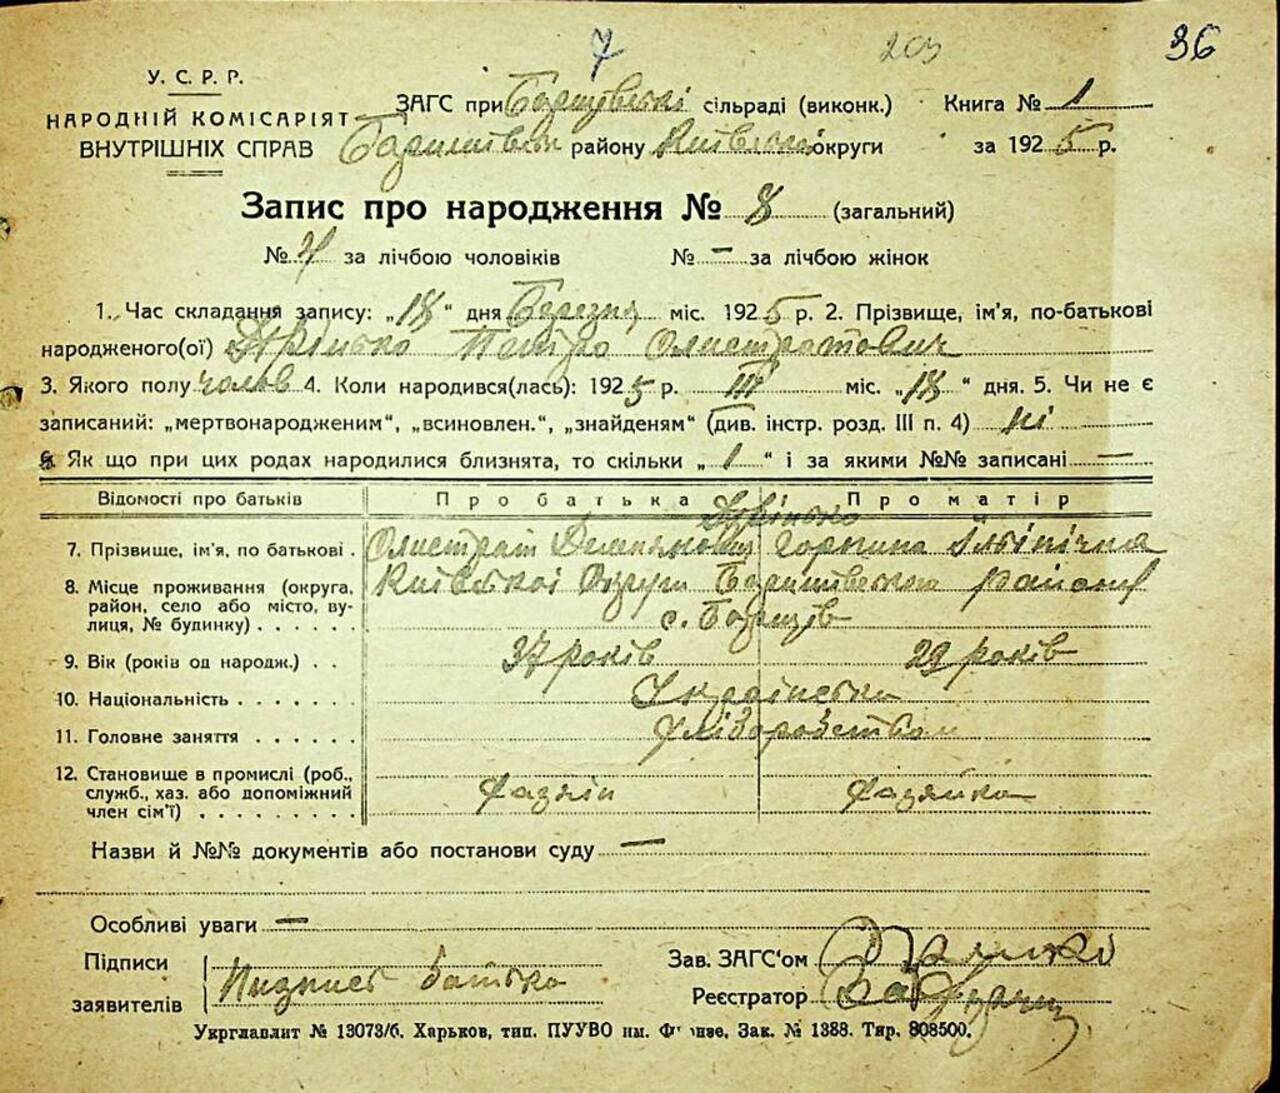 7 203 36
У. С. Р. Р.
НАРОДНІЙ КОМІСАРІЯТ
ВНУТРІШНІХ СПРАВ
ЗАГС при сільраді (виконк.) Книга № 1
району Київської округи за 1925 р.
Запис про народження № 8 (загальний)
№ 4 за лічбою чоловіків № — за лічбою жінок
1. Час складання запису: „18“ дня Березня міс. 1925 р. 2. Прізвище, ім'я, по-батькові
народженого(ої) Петро Олистратович
3. Якого полу чолов 4. Коли народився(лась): 1925 р. III міс. „18“ дня. 5. Чи не є
записаний: „мертвонародженим“, „всиновлен.“, „знайденям“ (див. інстр. розд. III п. 4) ні
6. Як що при цих родах народилися близнята, то скільки „1“ і за якими №№ записані —
Відомості про батьків Про батька Про матір
7. Прізвище, ім'я, по батькові . Олистрат Демянович Горпина Ільінічна
8. Місце проживання (округа, район, село або місто, вулиця, № будинку) . . . . . . Київської Округи району
с.
9. Вік (років од народж.) . . 37 років 29 років
10. Національність . . . . . . . Українська
11. Головне заняття . . . . . . Хліборобство
12. Становище в промислі (роб., служб., хаз. або допоміжний член сім'ї) . . . . . . . . . Хазяїн Хазяйка
Назви й №№ документів або постанови суду —
Особливі уваги —
Підписи
заявителів Подпись батька
Зав. ЗАГС'ом
Реєстратор
Укрглавлит № 13073/б. Харьков, тип. ПУУВО им. Фрунзе, Зак. № 1388. Тир. 808500.